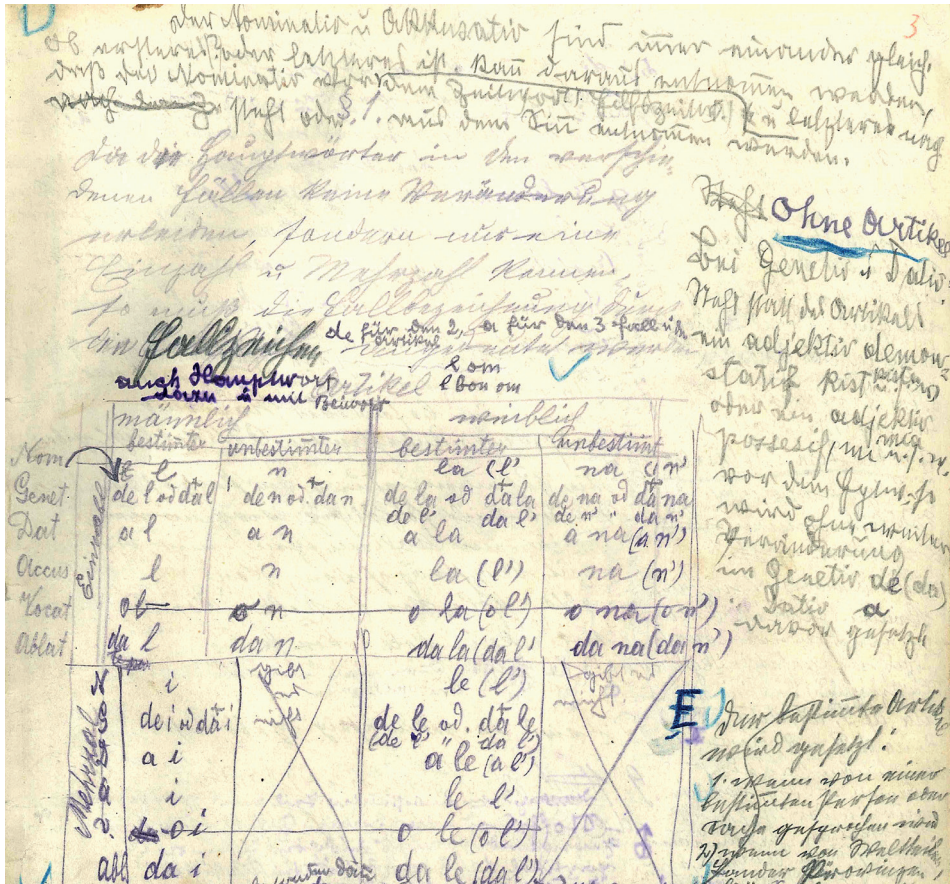 3
der Nominativ u Akkusativ sind im̄er einander gleich.
Ob ersteres oder letzteres ist, kan̄ daraus entnom̄en werden,
daß der Nominativ vor dem Zeitwort (Hilfszeitw.) u letzterer nach
steht oder aus dem Sin̄ entnom̄en werden.
Da die Hauptwörter in den verschie-
denen Fällen keine Veränderung
erleiden, sondern nur eine
Einzahl u Mehrzahl kennen,
so muß die Fallbezeichnung durch
die Fallzeichen de für den 2, a für den 3 Fall u da
Artikel werden
auch Hauptwort Artikel l om
dazu u mit Beiwort l bon om
männlich weiblich
bestim̄ter unbestim̄ter bestim̄ter unbestim̄t
Einzahl
Nom l n la (l') na (n')
Genet. de l od dal de n od. dan de la od dala de na od da na
de l' da l' de n' " da n'
Dat a l a n a la a na (a n')
Accus l n la (l') na (n')
Vocat o l o n o la (o l') o na (o n')
Ablat da l da n da la (da l') da na (da n')
Mehrzahl
i gibt es nicht le (l') gibt es nicht
de i od da i de le od. da le
(de l' da l')
a i a le (a l')
i le l'
o i o le (o l')
abl da i da le (da l')
Steht Ohne Artikel
Bei Genetiv u Dativ
steht statt des Artikels
ein adjektiv demon-
stativ
oder ein adjektiv
possesiv, u.s.w.
vor dem
wird ohne weitere
Veränderung
im Genetiv de (da)
Dativ a
davor gesetzt
E
Der bestim̄te Artikel
wird gesetzt:
1. wenn von einer
bestim̄ten Person oder
Sache gesprochen wird
2) wenn von Weltteilen
Länder Provinzen,